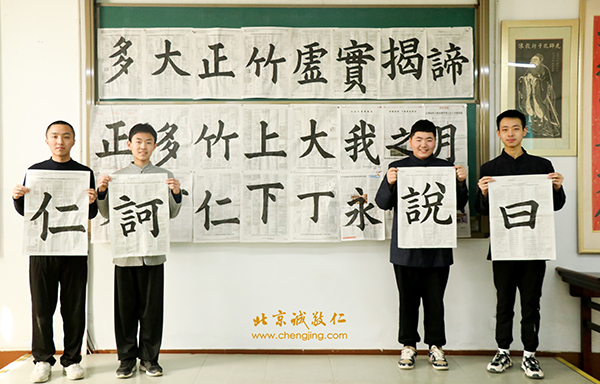 多大正竹虛實揭諦
正多竹上大我之月
仁下丁永
仁
訶
說
曰
北京诚敬仁
www.chengjing.com